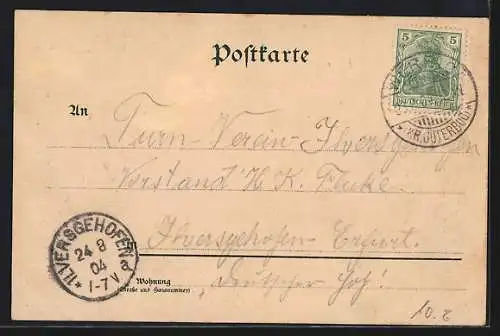 Postkarte
5 5
DEUTSCHES REICH
* KR. JÜTERBOG *
An
Turn-Verein Ilversgehofen
Vorstand H. K. Fluke.
Ilversgehofen-Erfurt.
Deutscher Hof!
* ILVERSGEHOFEN a
24 8
04
1-7V
Wohnung
(Straße und Hausnummer)
10.2